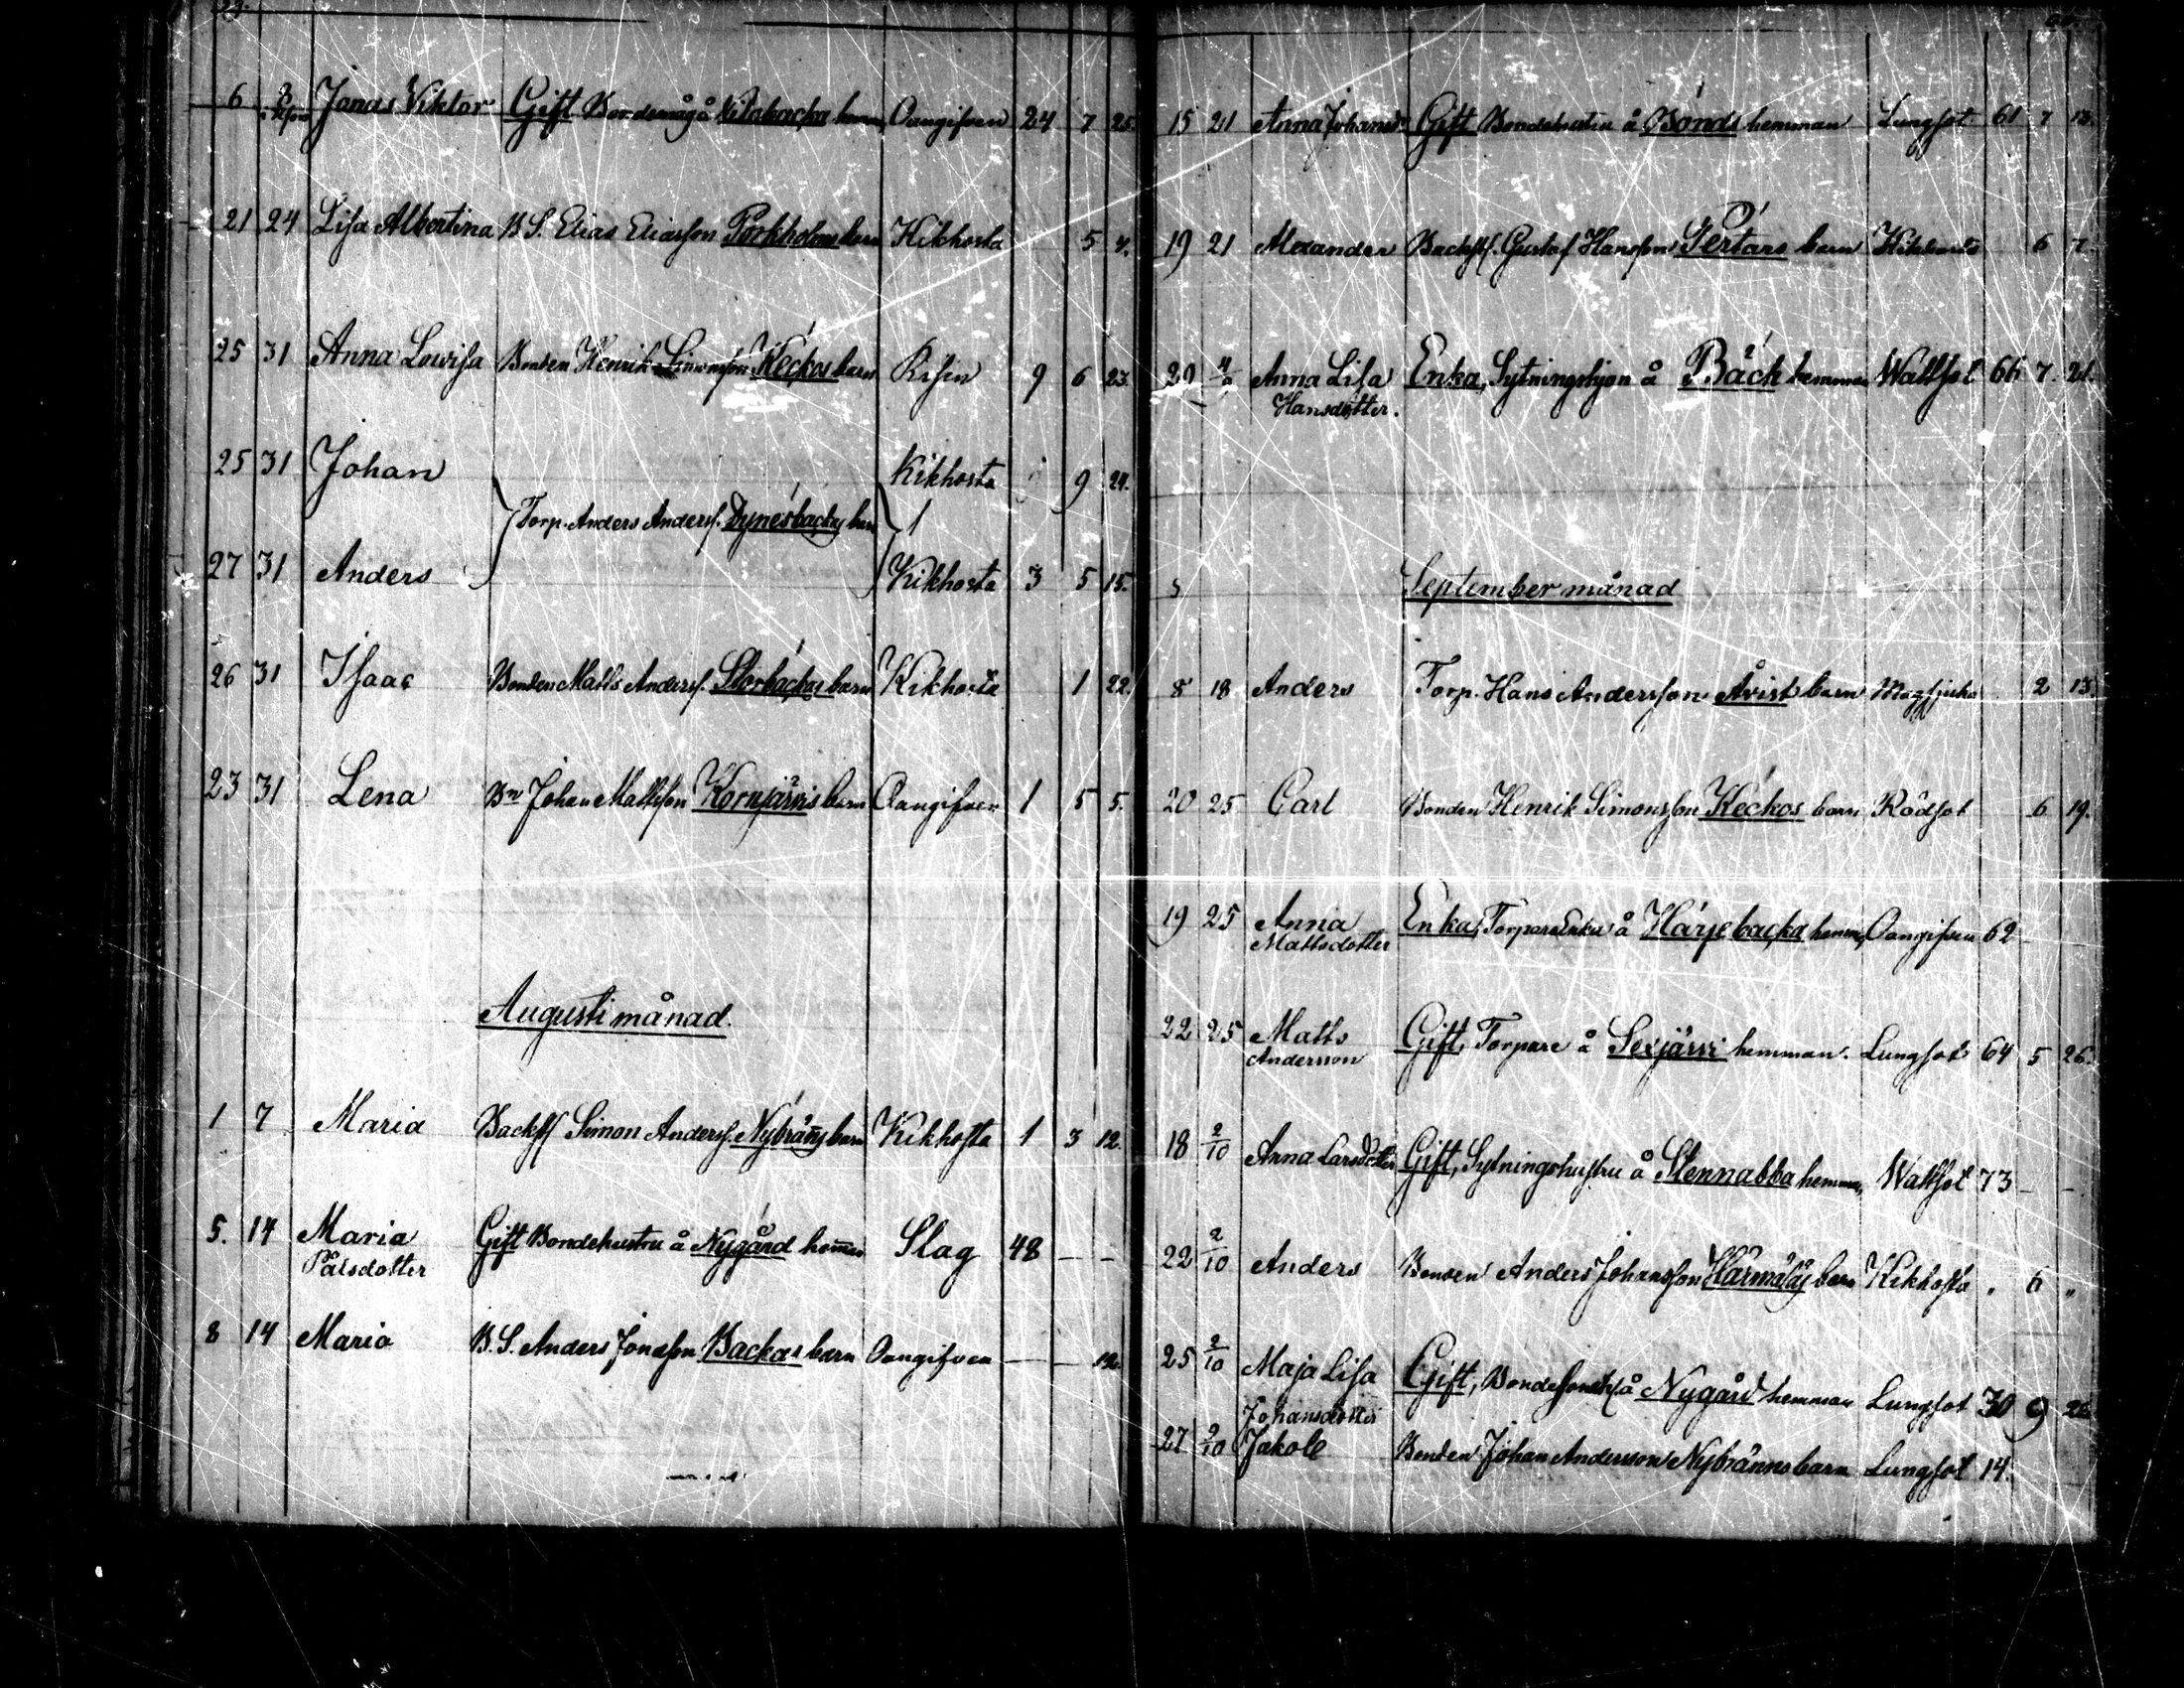 6 Jonas Viktor Gift Bondemåg å hemm Oangifven 24 7 25.
21 24 Lisa Albertina B S. Elias Eliasson Porkholms barn Kikhosta 5 4.
25 31 Anna Lovisa Bonden Henrik Simonsson Keckos barn Risin 9 6 23.
25 31 Johan Kikhosta 9 24.
Torp. Anders Anderss. Dynesbackas barn
27 31 Anders Kikhosta 3 5 15.
26 31 Isaac Bonden Matts Anderss. Storbackas barn Kikhosta 1 22.
23 31 Lena Bn Johan Mattsson Kornjärvis barn Oangifven 1 5 5.
Augusti månad.
1 7 Maria Backst Simon Anderss. Nybränns barn Kikhosta 1 3 12.
5. 14 Maria Gift Bondehustru å Nygård hemman Slag 48 — —
Pålsdotter
8 14 Maria B. S. Anders Jonasson Backas barn Oangifven — — 12.
15 21 Anna Johansdr Gift Bondehustru å Bonds hemman Lungsot 61 7 13.
19 21 Alexander Backst. Gustaf Hansson Pertars barn Kikhosta 6 7
29 4/9 Anna Lisa Enka, Sytningshjon å Bäck hemman Wattsot 66 7. 21.
Hansdotter.
September månad
8 18 Anders Torp. Hans Andersson Åvist barn Magsjuka 2 13
20 25 Carl Bonden Henrik Simonsson Keckos barn Rödsot 6 19.
19 25 Anna Enka, Torpareenka å Härjebacka hemm, Oangifven 62
Mattsdotter
22 25 Matts Gift, Torpare å Sexjärvi hemman. Lungsot 64 5 26.
Andersson
18 2/10 Anna Larsdotter Gift, Sytningshustru å Stennabba hemman, Wattsot 73 — —
22 2/10 Anders Bonden Anders Johansson Härmäläs barn Kikhosta " 6 "
25 2/10 Maja Lisa Gift, å Nygård hemman Lungsot 30 9 26
Johansdotter
27 2/10 Jakob Bonden Johan Andersson Nybränns barn Lungsot 14.